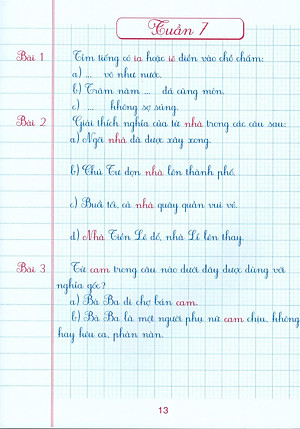 Tuần 7
Bài 1 Tìm tiếng có ia hoặc iê điền vào chỗ chấm:
a) ... vỡ như nước.
b) Trăm năm ... đá cũng mòn.
c) ... không sợ súng.
Bài 2 Giải thích nghĩa của từ nhà trong các câu sau:
a) Ngôi nhà đã được xây xong.
b) Chú Tư dọn nhà lên thành phố.
c) Buổi tối, cả nhà quây quần vui vẻ.
d) Nhà Tiền Lê đổ, nhà Lí lên thay.
Bài 3 Từ cam trong câu nào dưới đây được dùng với
nghĩa gốc?
a) Bà Ba đi chợ bán cam.
b) Bà Ba là một người phụ nữ cam chịu, không
hay kêu ca, phàn nàn.
13